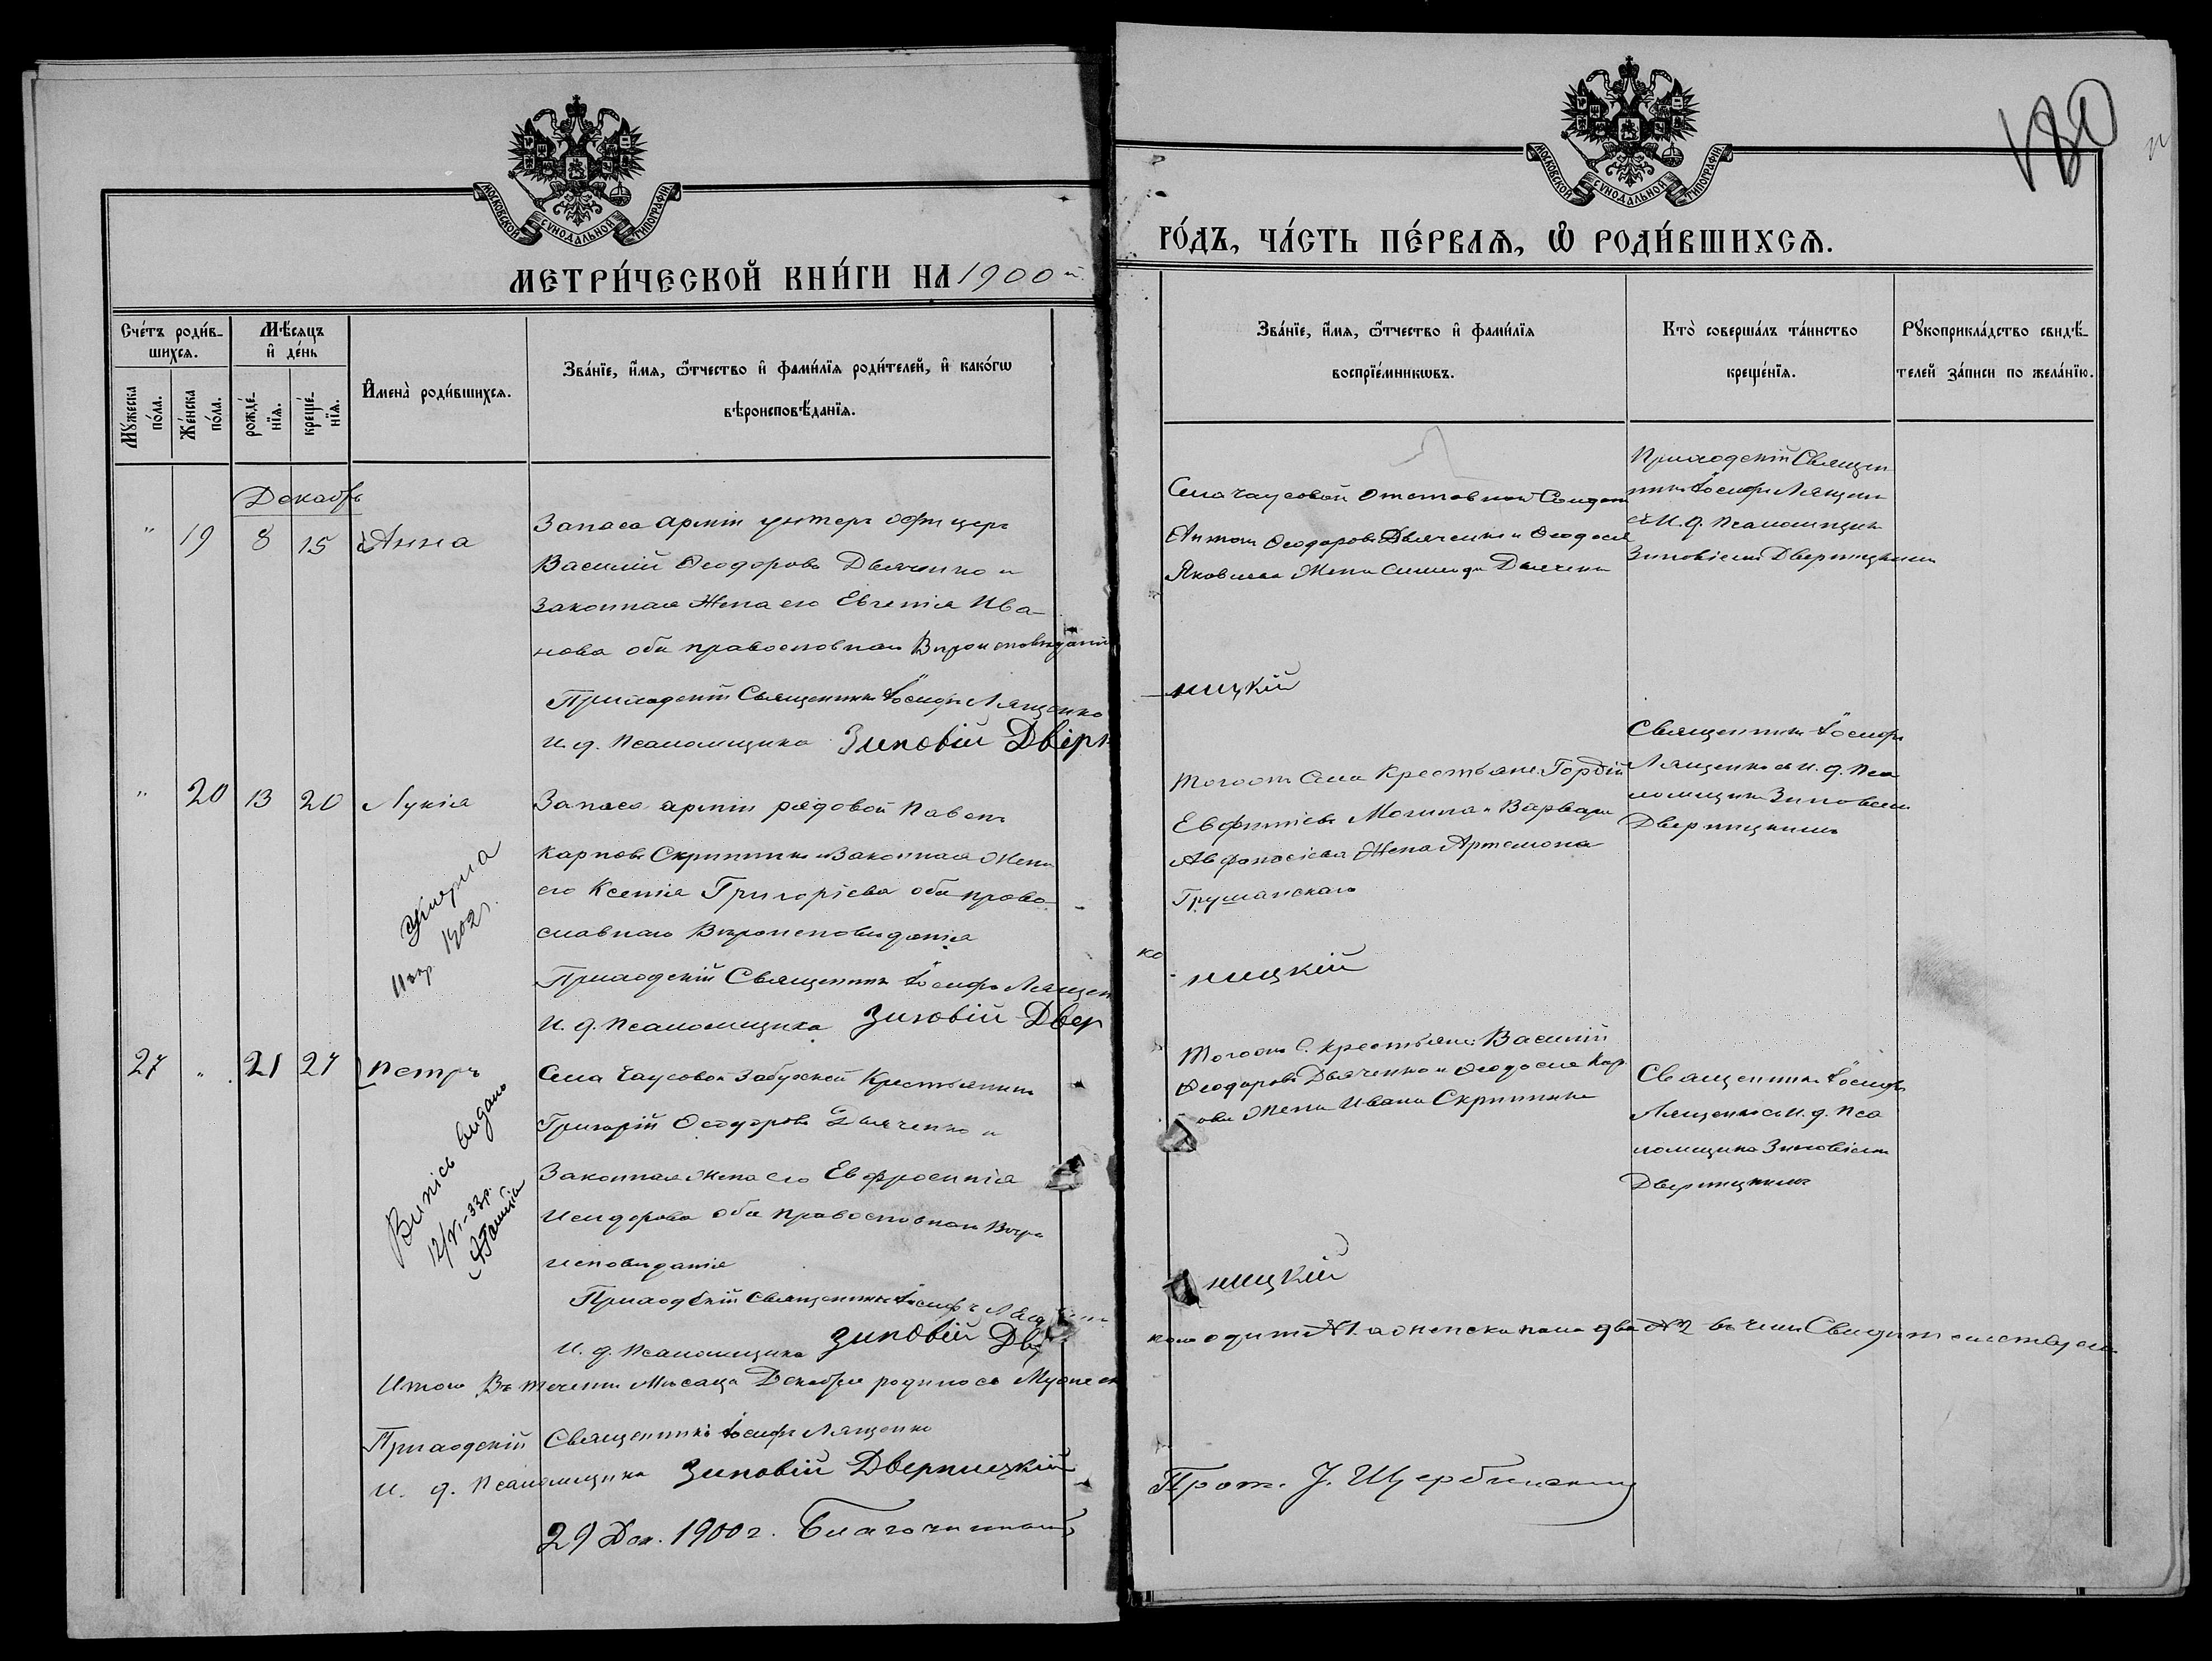 МОСКОВСКОЙ СѴНОДАЛЬНОЙ ТИПОГРАФІИ
МЕТРИ́ЧЕСКОЙ КНИ́ГИ НА 1900 й
Сче́тъ роди́в-
шихсѧ.
Мѣ́сѧцъ
и҆ де́нь
Мꙋ́жеска
по́ла.
Же́нска
по́ла.
рожде́-
нїѧ.
креще́-
нїѧ.
И҆мена̀ роди́вшихсѧ.
Зва́нїе, и҆́мѧ, ѻ҆́тчество и҆ фами́лїѧ роди́телей, и҆ како́гѡ
вѣроисповѣ́данїѧ.
Декабрь
" 19 8 15 Анна
Запаса арміи унтеръ офицеръ
Василій Ѳеодоровъ Дьяченко и
Законная Жена его Евгенія Ива-
нова оба православнаго Вѣроисповѣданія
Приходскій Священникъ Іосифъ Лященко
И. д. Псаломщика Зиновій Дверн
" 20 13 20 Лукія
Запаса арміи рядовой Павелъ
Карповъ Скрипникъ и Законная Жена
его Ксенія Григоріева оба право-
славнаго Вѣроисповѣданія
Приходскій Священникъ Іосифъ Лящен
И. д. Псаломщика Зиновій Двер
умерла
1902 г.
27 " 21 27 Петръ
Села Чаусовой Забужской Крестьянинъ
Григорій Ѳеодоровъ Дьяченко и
Законная жена его Евфросинія
Исидорова оба православнаго Вѣро
исповѣданія
Приходскій Священникъ Іосифъ Лящен
И. д. Псаломщика Зиновій Дв
Випісь видано
12/VI-33р.
Итого Въ теченіи Мѣсяца Декабря родилось Мужеск
Приходскій Священникъ Іосифъ Лященко
И. д. Псаломщика Зиновій Дверницкій
29 Дек. 1900 г. Благочинный
180
МОСКОВСКОЙ СѴНОДАЛЬНОЙ ТИПОГРАФІИ
РО́ДЪ, ЧА́СТЬ ПЕ́РВАѦ, Ѡ҆ РОДИ́ВШИХСѦ.
Зва́нїе, и҆́мѧ, ѻ҆́тчество и҆ фами́лїѧ
воспрїе́мникѡвъ.
Кто̀ соверша́лъ та́инство
креще́нїѧ.
Рꙋкоприкла́дство свидѣ́-
телей за́писи по жела́нїю.
Села Чаусовой Отставной Солдатъ
Антонъ Ѳеодоровъ Дьяченко и Ѳеодосія
Яковлева Жена Дьяченк
Приходскій Священ
никъ Іосифъ Лященк
съ И. д. Псаломщик
Зиновіемъ Дверницкимъ
ницкій
Тогоже Села Крестьяне: Гордій
Евфиміевъ Могила и Варвара
Афонасіева Жена Артемона
Грушанскаго
Священникъ Іосифъ
Лященко съ И. д. Пса
ломщика Зиновіемъ
Дверницкимъ
ко
ницкій
Тогоже С. Крестьяне: Василій
Ѳеодоровъ Дьяченко и Ѳеодосія Кар
ова Жена Ивана Скрипника
Священникъ Іосифъ
Лященко съ И. д. Пса
ломщика Зиновіемъ
Дверницкимъ
ницкій
каго одинъ №1. а женска пола два №2 въ чемъ Свидѣтельствуемъ
Прот. І. Щербинскій